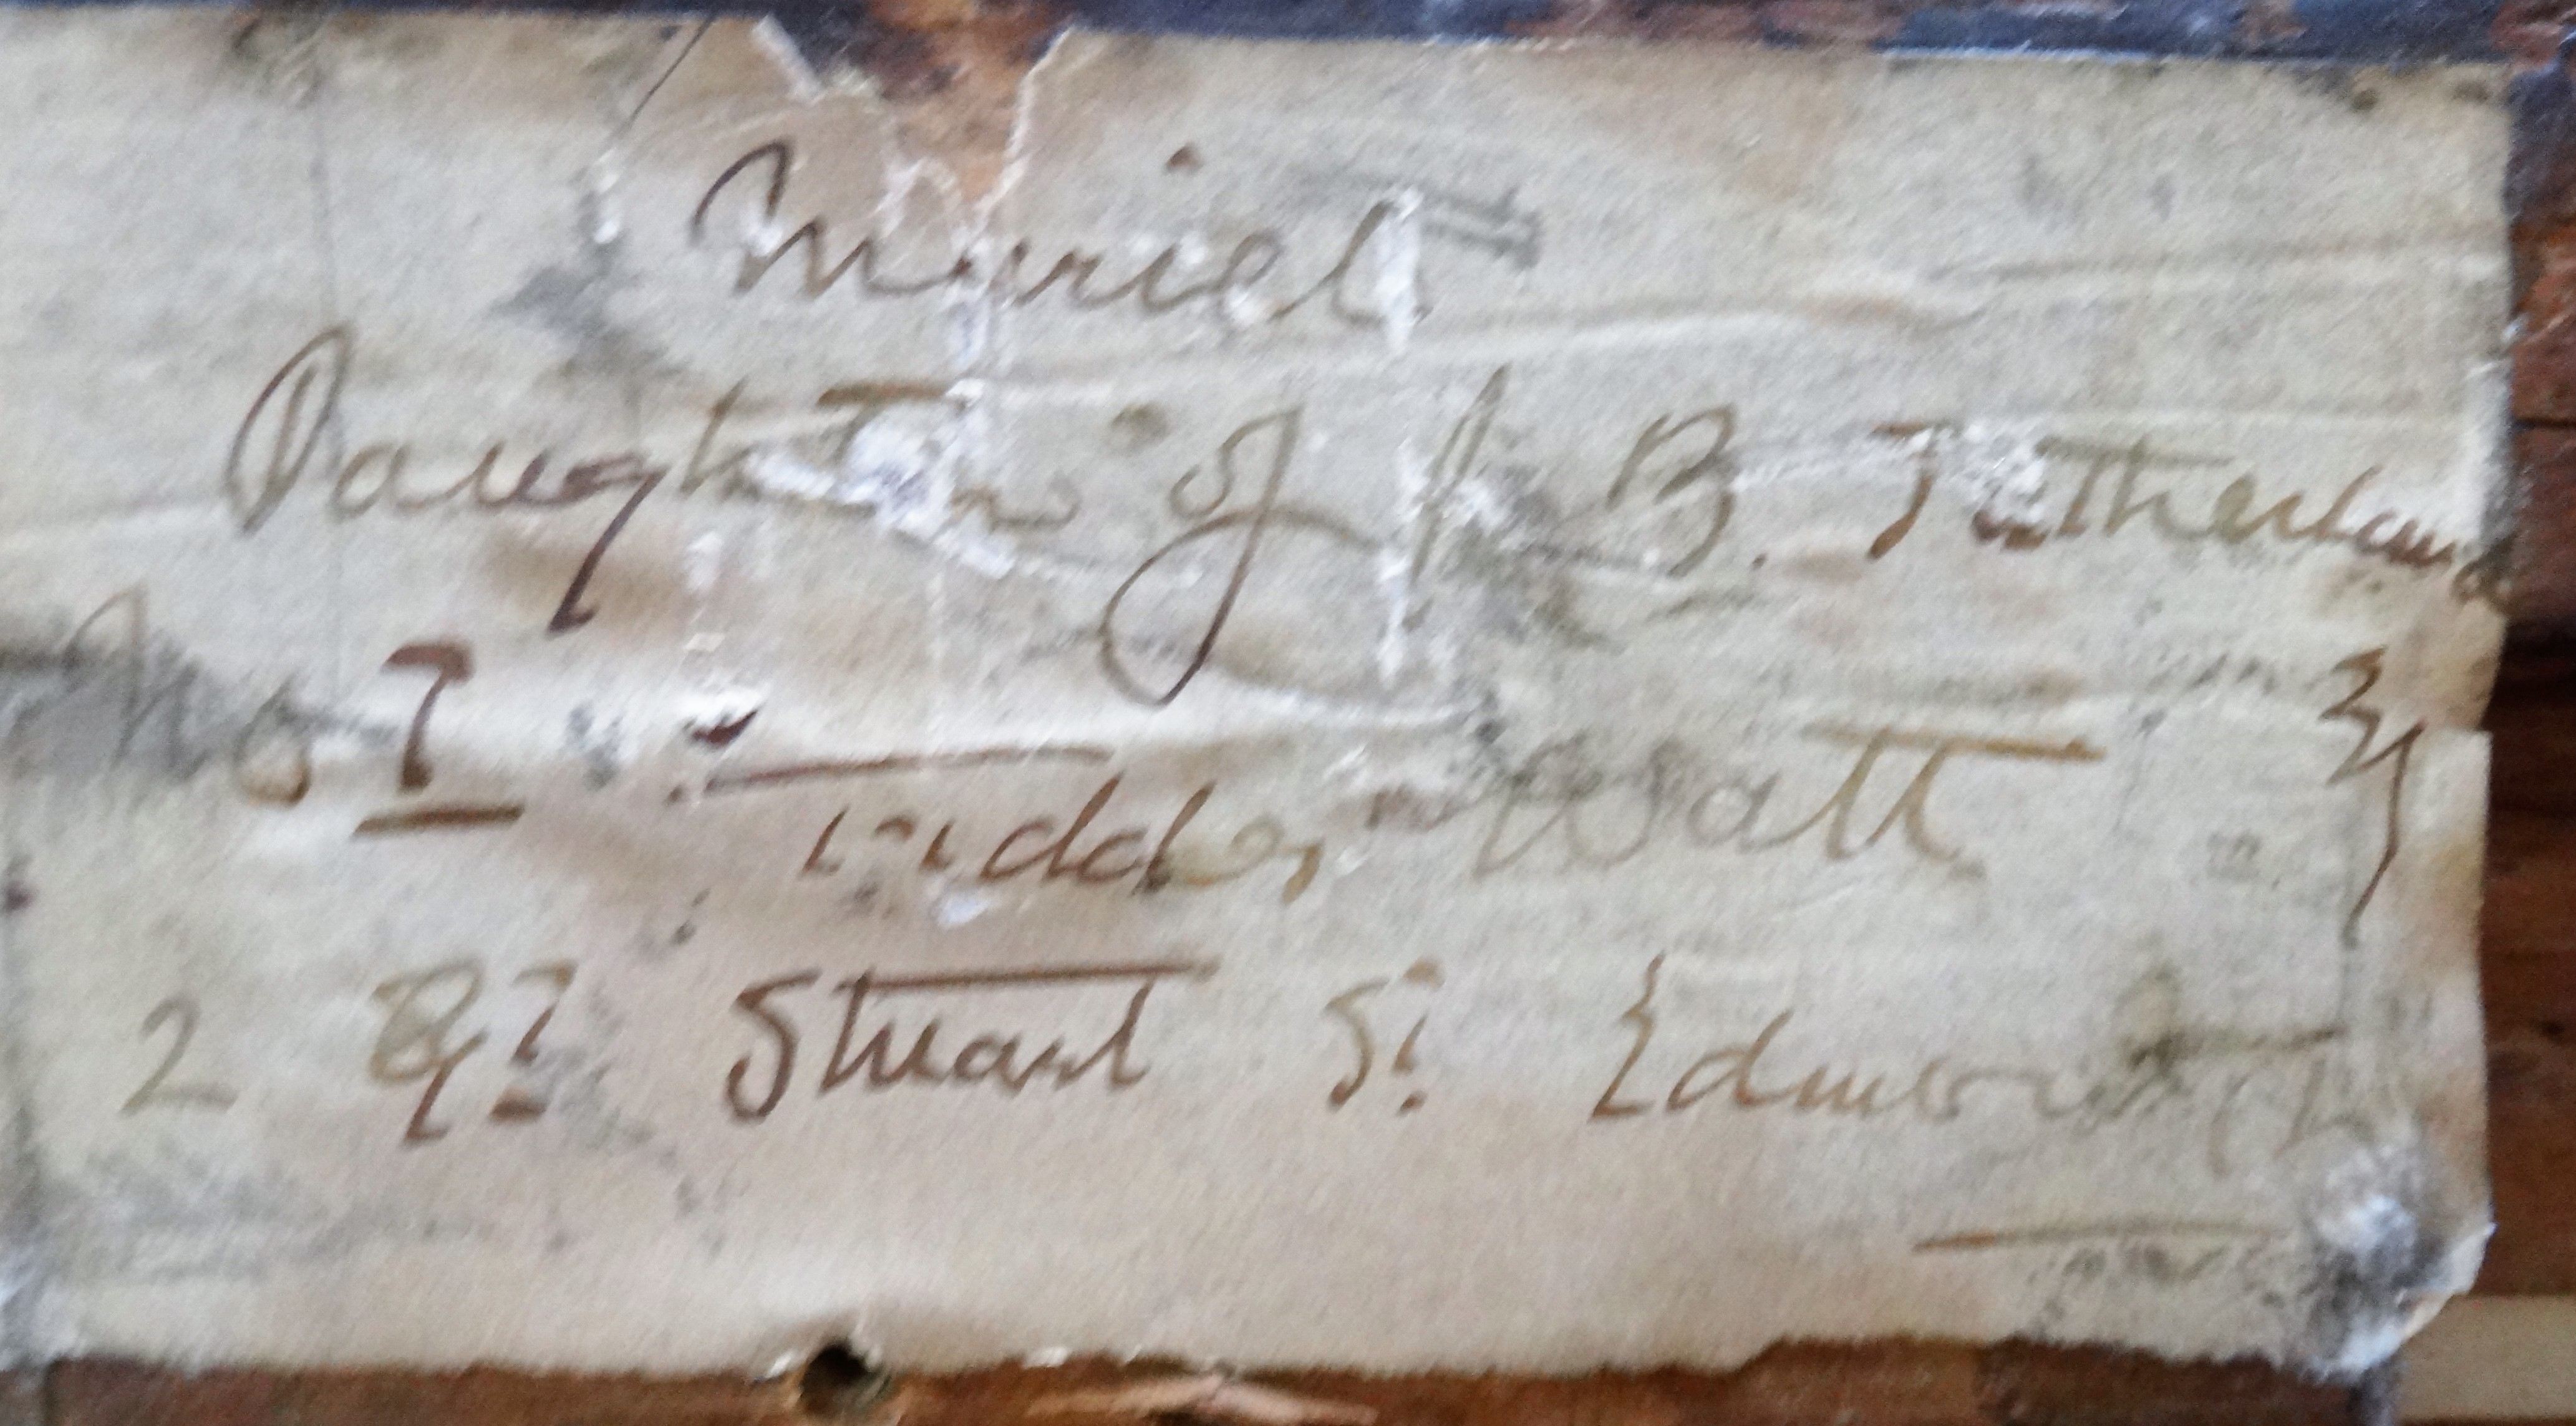 Muriel
Daughter of J. B. Sutherland
No 1
Fiddes Watt
2 Gt Stuart St Edinburgh